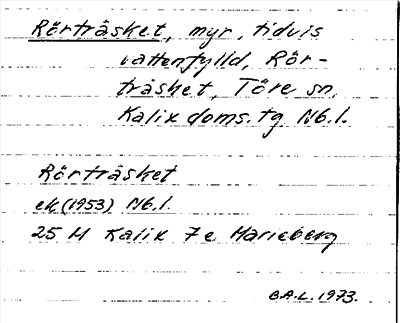 Rörträsket, myr, tidvis
vattenfylld, Rör-
träsket, Töre sn,
Kalix doms. tg Nb.l.
Rörträsket
ek (1953) Nb.l.
25 M Kalix 7e Marieberg
B.A.L. 1973.